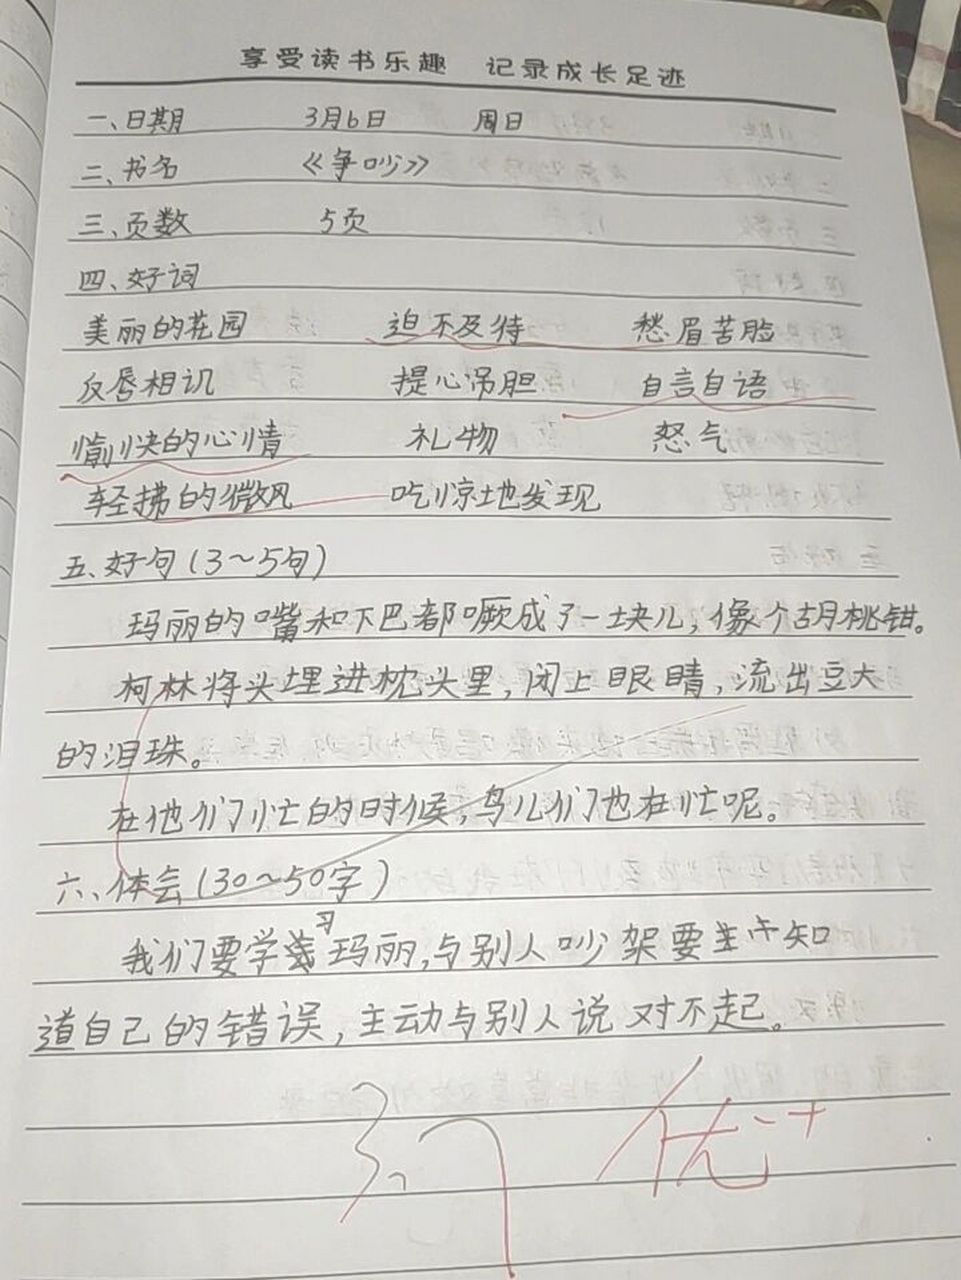 享受读书乐趣 记录成长足迹
一、日期 3月6日 周日
二、书名 《争吵》
三、页数 5页
四、好词
美丽的花园 迫不及待 愁眉苦脸
反唇相讥 提心吊胆 自言自语
愉快的心情 礼物 怒气
轻拂的微风 吃惊地发现
五、好句(3～5句)
玛丽的嘴和下巴都噘成了一块儿,像个胡桃钳。
柯林将头埋进枕头里,闭上眼睛,流出豆大
的泪珠。
在他们忙的时候,鸟儿们也在忙呢。
六、体会(30～50字)
我们要学习玛丽,与别人吵架要知
道自己的错误,主动与别人说对不起。
优++